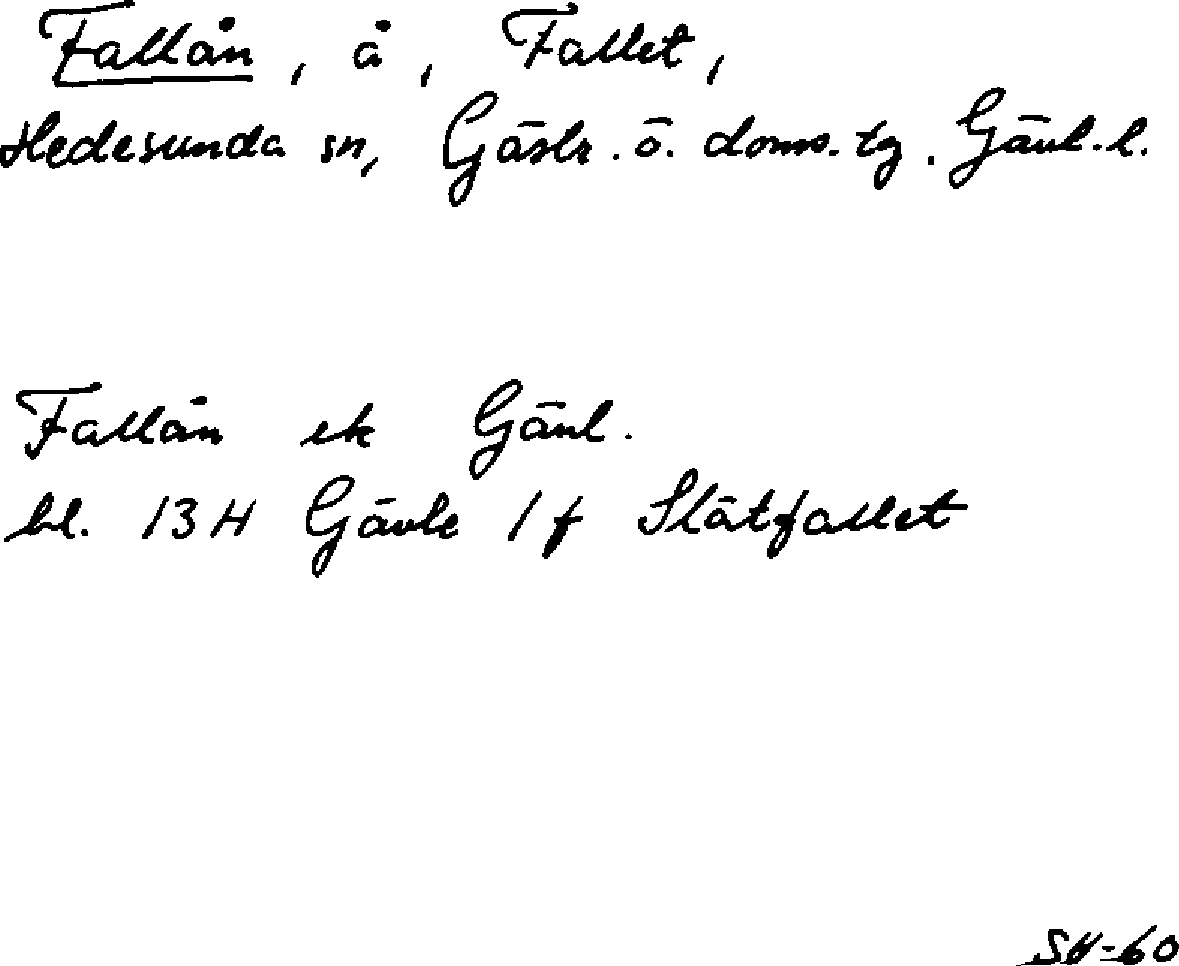 Fallån, å, Fallet,
Hedesunda sn, Gästr. ö. doms. tg. Gävl. l.
Fallån ek Gävl.
bl. 13H Gävle 1f Slätfallet